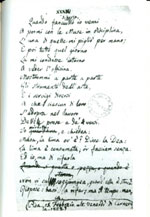 XXXVI
Quando fanciullo io venni
A pormi con le Muse in disciplina,
L'una di quelle mi pigliò per mano;
E poi tutto quel giorno
La mi condusse intorno
A veder l'officina.
Mostrommi a parte a parte
Gli strumenti dell'arte,
E i servigi diversi
A che ciascun di loro
S'adopra nel lavoro
Delle prose e de' versi.
Io mirava, e chiedea:
Musa, la lima ov'è? Disse la Dea:
La lima è consumata; or facciam senza.
Ed io, ma di rifarla
Non vi cal, soggiungea, quand'ella è stanca?
Rispose: hassi a rifar, ma il tempo manca.